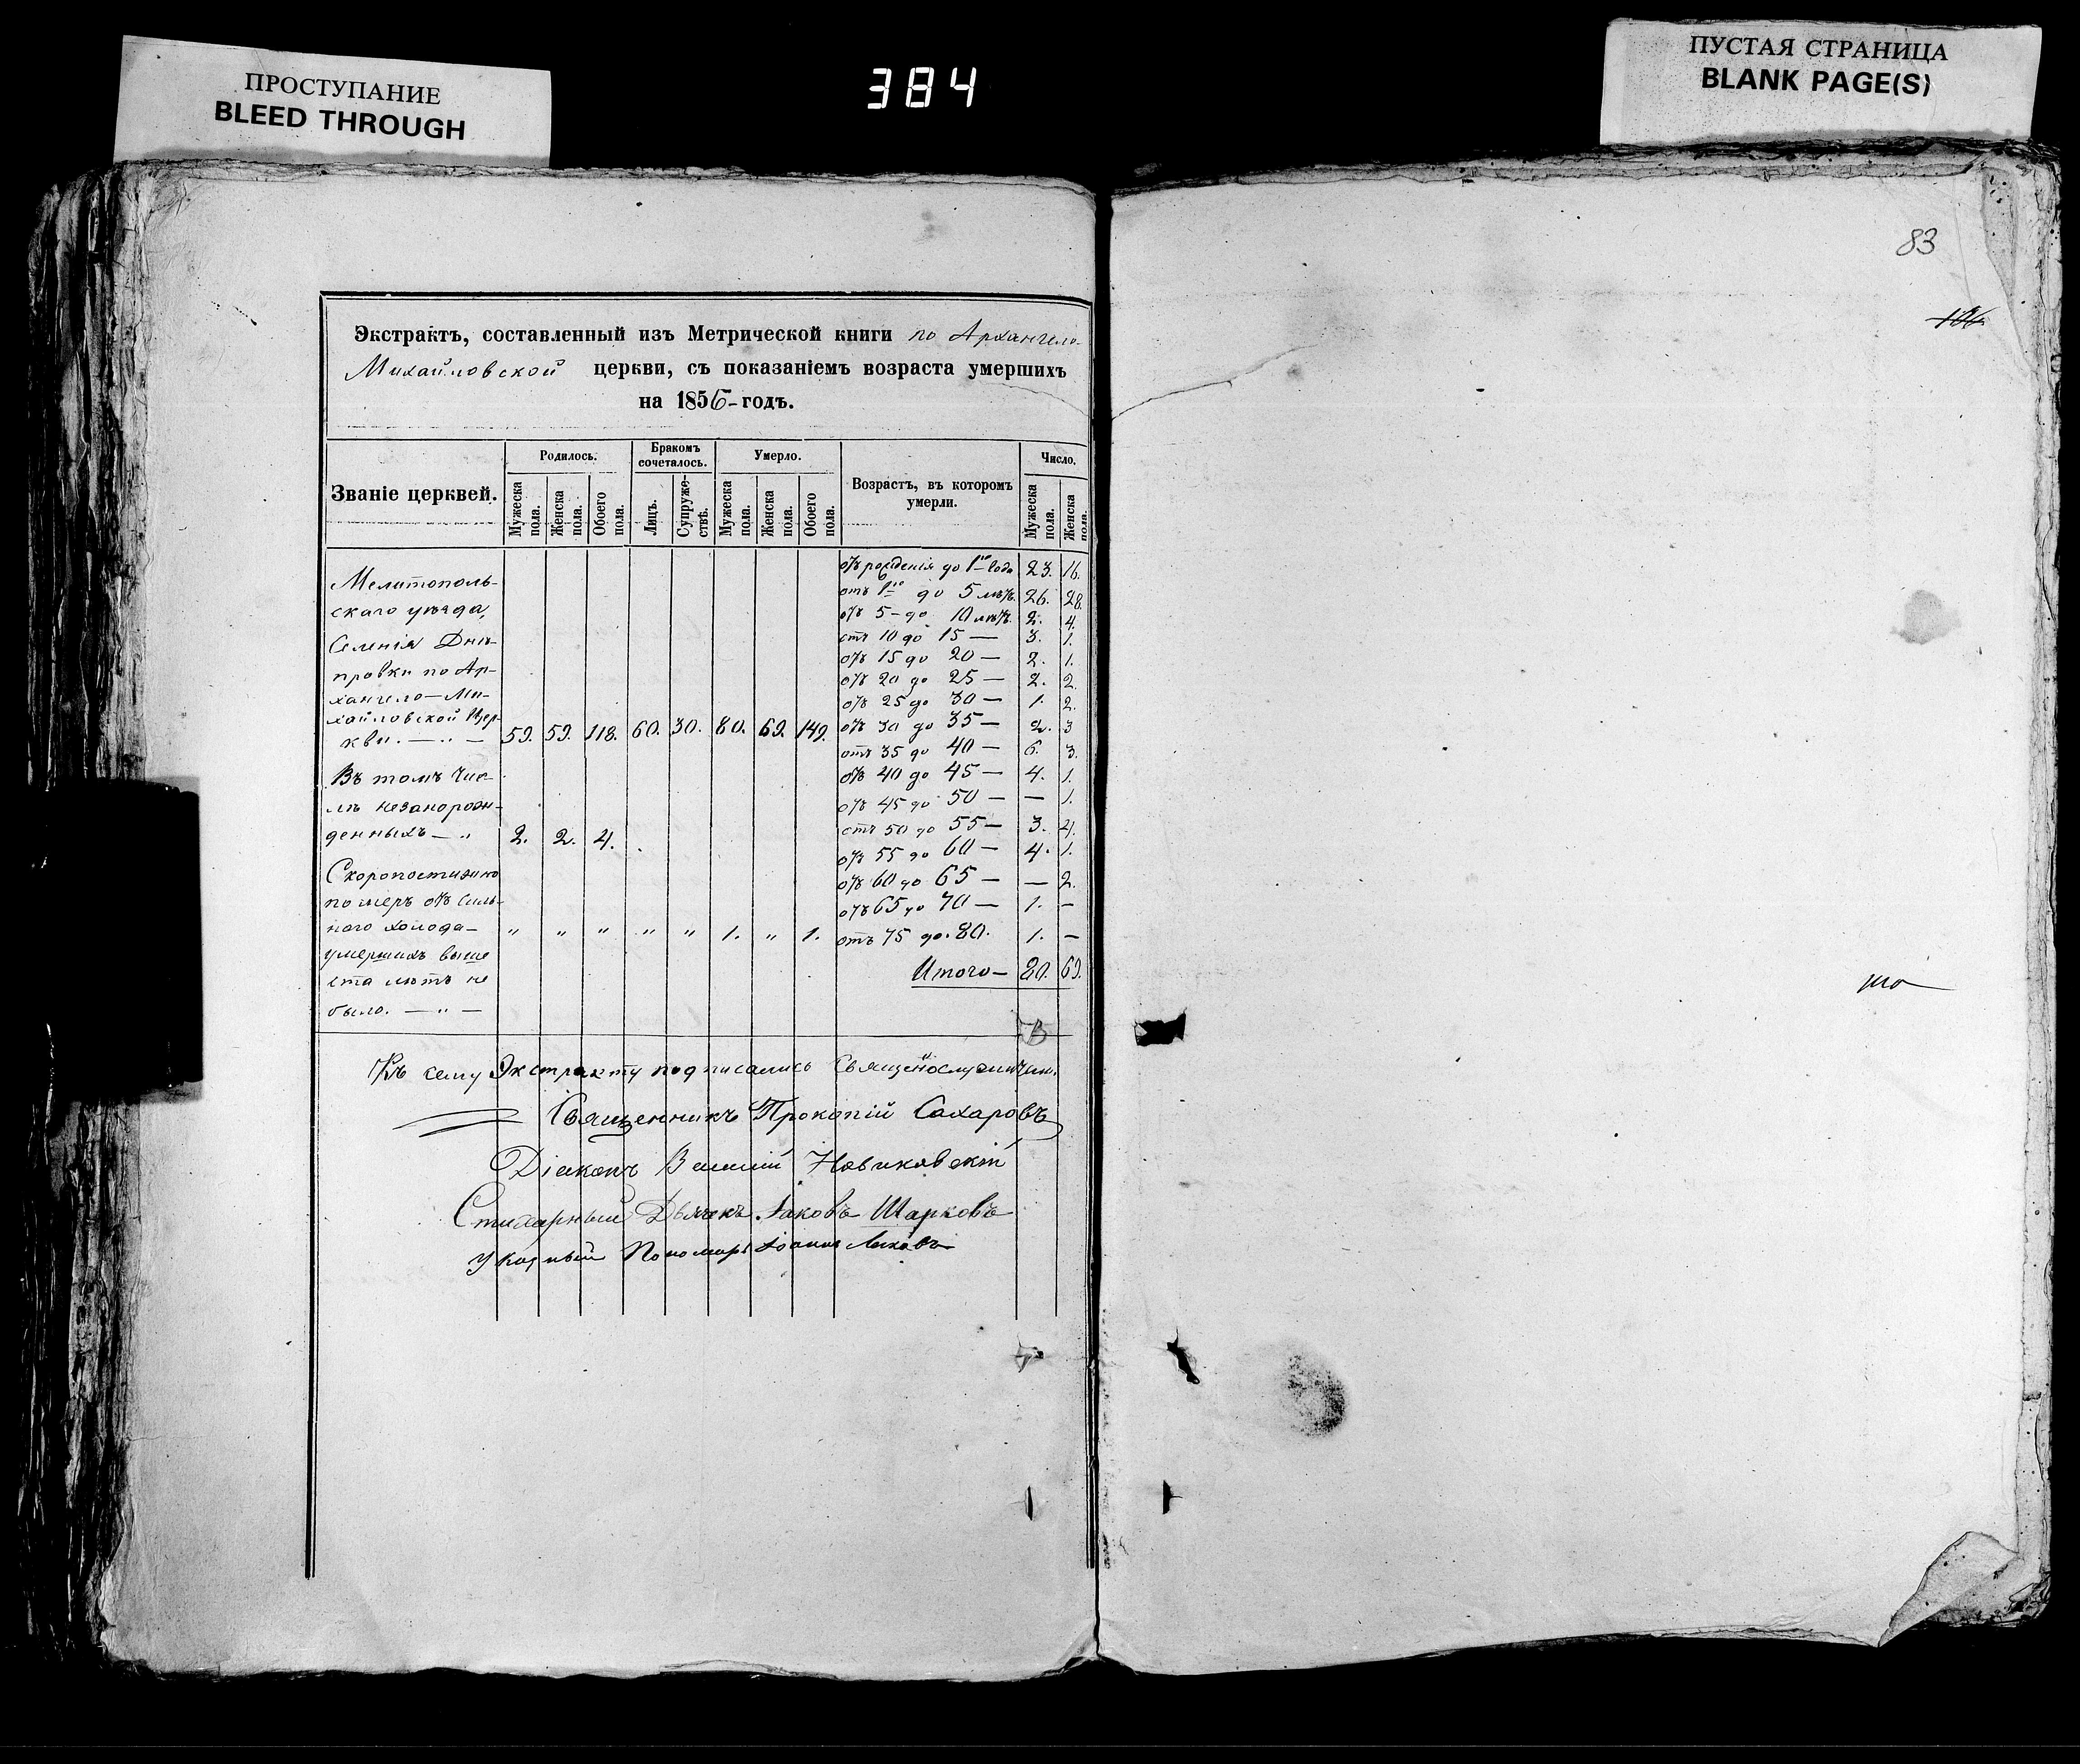 ПРОСТУПАНИЕ
BLEED THROUGH
384
ПУСТАЯ СТРАНИЦА
BLANK PAGE(S)
83
106
Экстрактъ, составленный изъ Метрической книги по Архангело-
Михайловской церкви, съ показаніемъ возраста умершихъ
на 1856-годъ.
Званіе церквей.
Родилось.
Бракомъ сочеталось.
Умерло.
Возрастъ, въ которомъ умерли.
Число.
Мужеска пола.
Женска пола.
Обоего пола.
Лицъ.
Супруже-ствъ.
Мужеска пола.
Женска пола.
Обоего пола.
Мужеска пола.
Женска пола.
Мелитополь-
скаго уѣзда,
Селенія Днѣ-
провки по Ар-
хангело-Ми-
хайловской Цер-
кви. — „ — 59. 59. 118. 60. 30. 80. 69. 149.
Въ томъ чис-
лѣ незаконорож-
денныхъ — „ 2. 2. 4.
Скоропостижно
померъ отъ силь-
наго холода — „ „ „ „ „ 1. „ 1.
умершихъ выше
ста лѣтъ не
было. — „ —
отъ рожденія до 1го года 23. 16.
отъ 1го до 5 лѣтъ. 26. 28.
отъ 5 - до 10 лѣтъ. 2. 4.
отъ 10 до 15 — 3. 1.
отъ 15 до 20 — 2. 1.
отъ 20 до 25 — 2. 2.
отъ 25 до 30 — 1. 2.
отъ 30 до 35 — 2. 3
отъ 35 до 40 — 6. 3.
отъ 40 до 45 — 4. 1.
отъ 45 до 50 — — 1.
отъ 50 до 55 — 3. 4.
отъ 55 до 60 — 4. 1.
отъ 60 до 65 — — 2.
отъ 65 до 70 — 1. —
отъ 75 до 80. 1. —
Итого — 80. 69.
Къ сему Экстракту подписались Священослужители.
Священникъ Прокопій Сахаровъ
Діаконъ Василій Новиковскій
Стихарный Дьячекъ Іаковъ Шарковъ
Указный Пономарь Іоаннъ